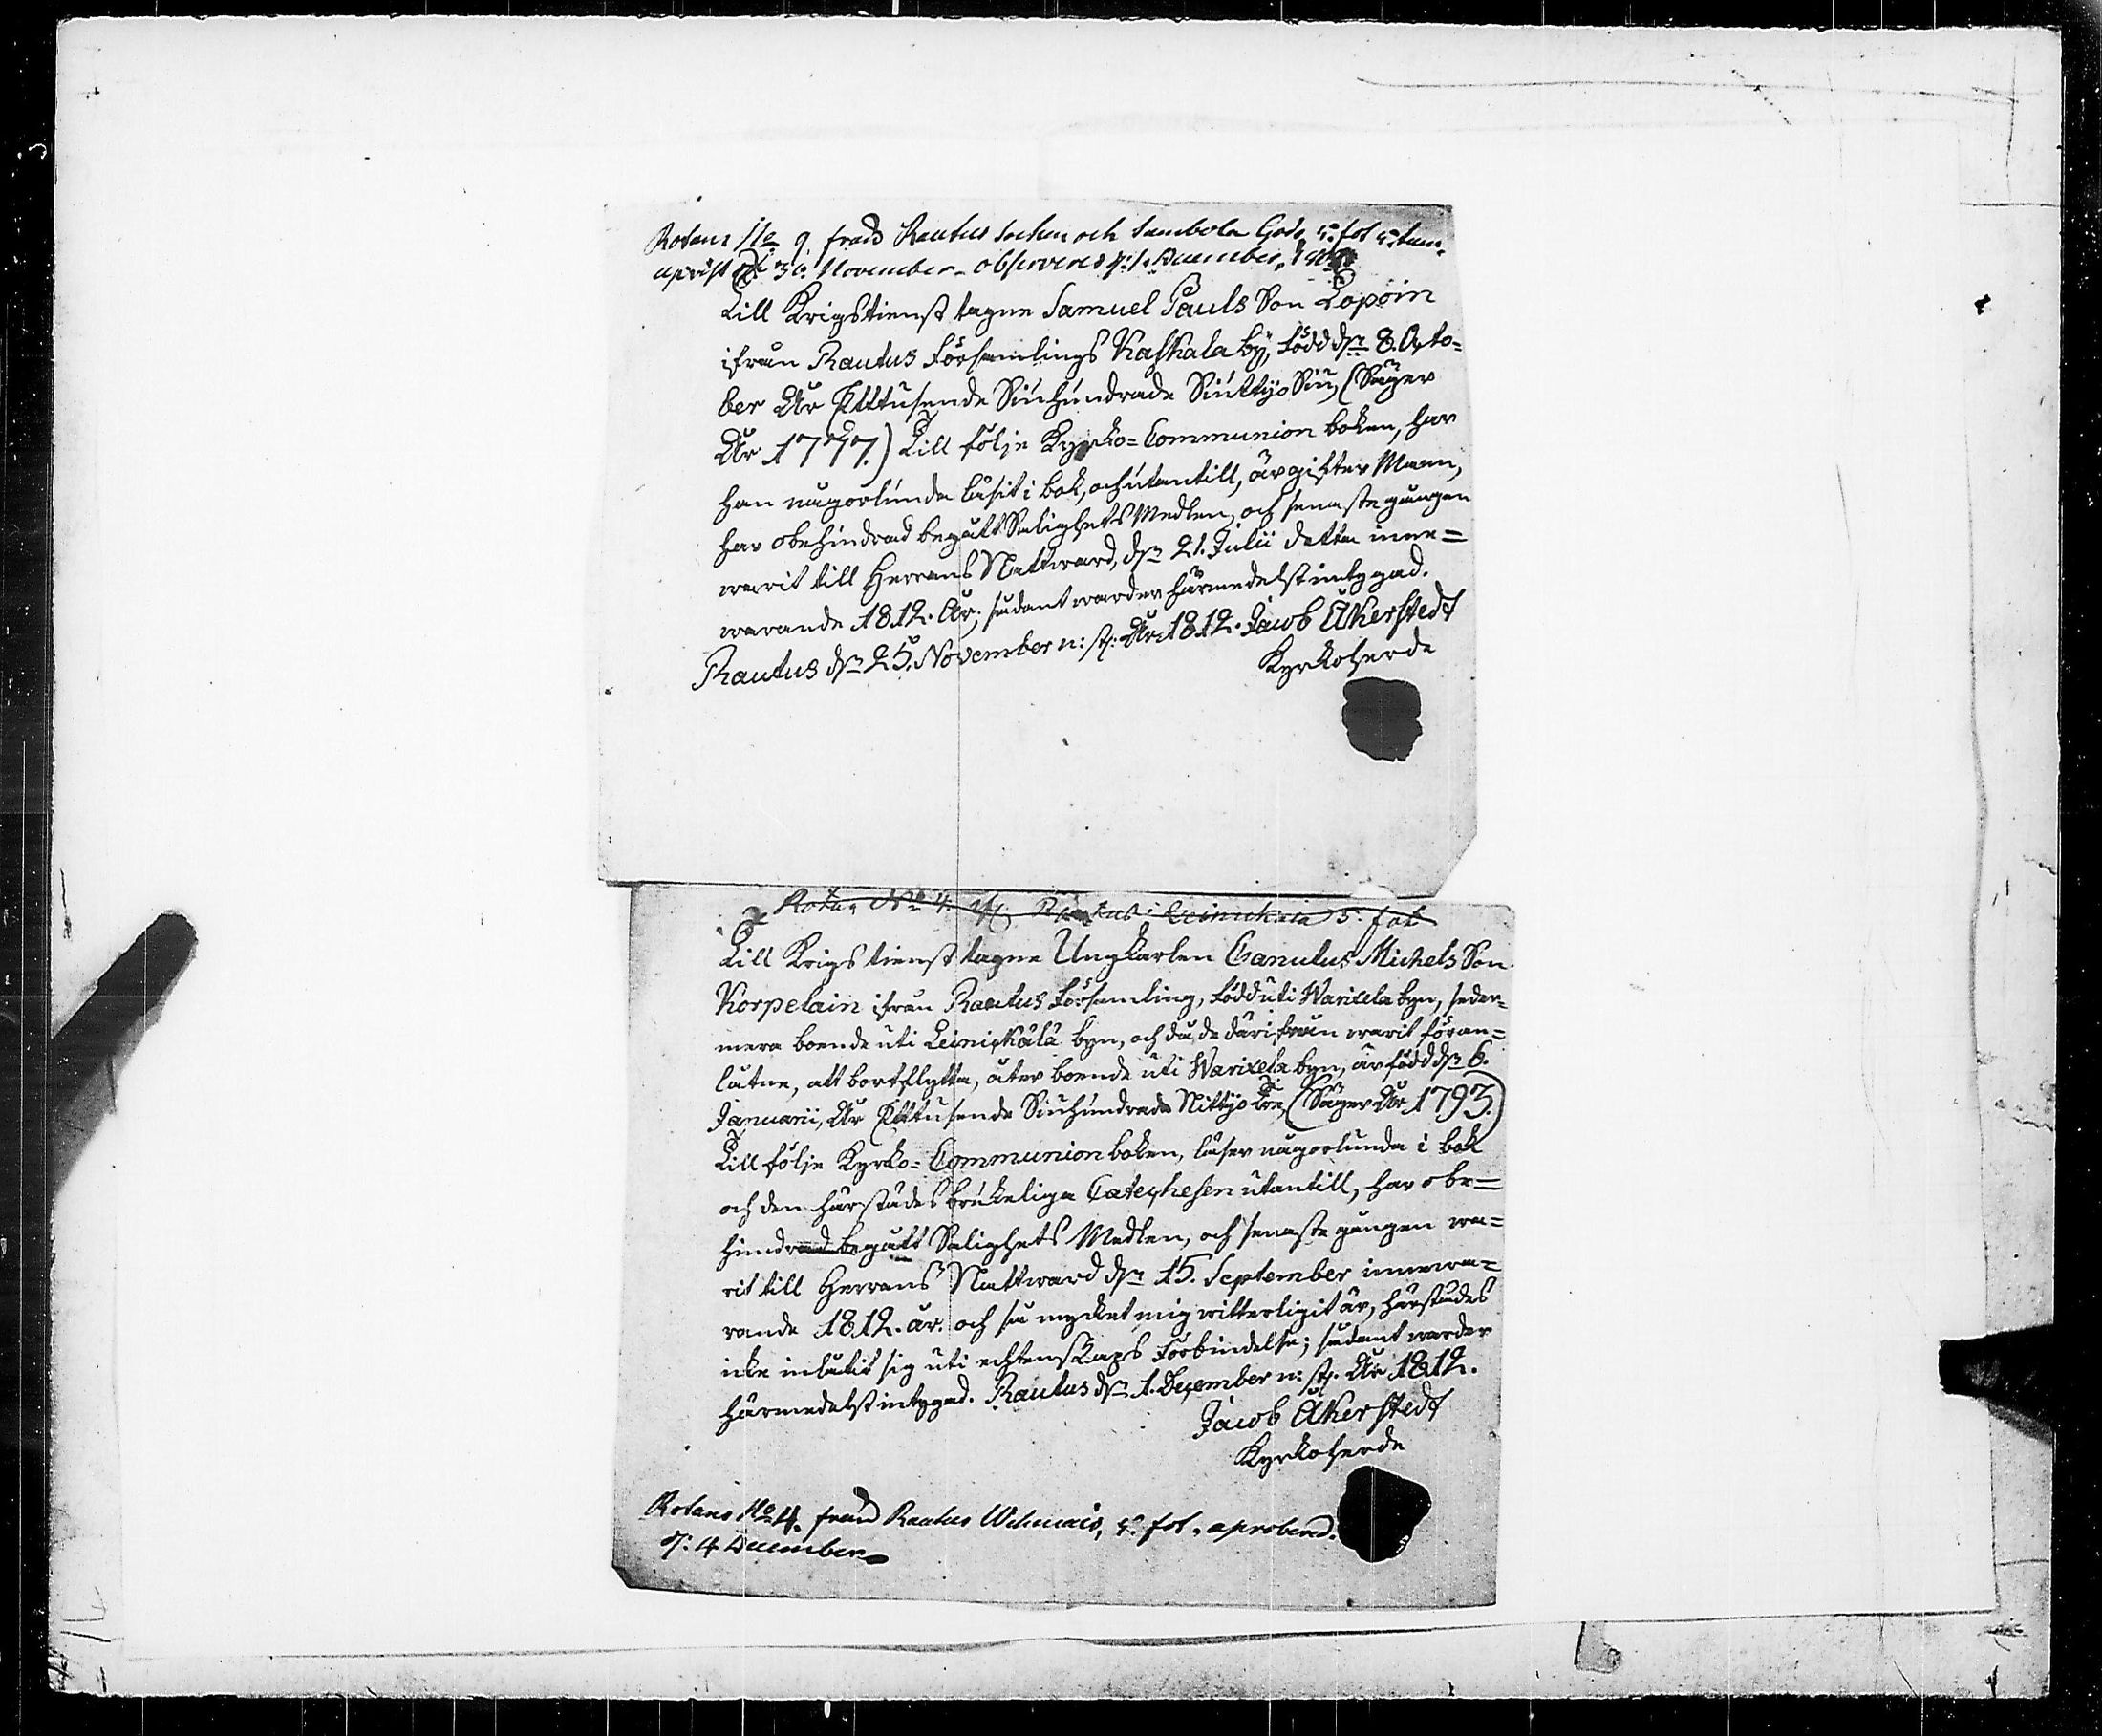 Rotans No 9. från Rautus Sochen och Sumbola Gods, 5. fot 5. tum.
30. November observeras d: 1. December,
Till Krigstienst tagne Samuel Pauls Son Loponn
ifrån Rautus Församlings Kaskala by, född d:n 8. Octo=
ber År Ettusende Siuhundrade Siuttijo Siu, (Säger
År 1777.) Till följe Kyrko=Communion boken, har
han någorlunda läsit i bok, och utantill, är gifter Mann,
har obehindrad begått Salighets Medlen, och senaste gången
warit till Herrans Nattward, d:n 21. Julii detta inne=
warande 1812. År; sådant warder härmedelst intygad.
Rautus d:n 25. November n: st: År 1812. Jacob Åkerstedt
Kyrkoherde
Rotan No 4. Rautus 5. fot
Till Krigstienst tagne Ungkarlen Canutus Michels Son
Korpelain ifrån Rautus Församling, född uti Warixela byn, seder=
mera boende uti Leinikälä byn, och då de därifrån warit föran=
låtne, att bortflytta, åter boende uti Warixela byn, är född d:n 6.
Januarii, År Ettusende Siuhundrade Nittijo Tre, (Säger År 1793.)
Till följe Kyrko=Communion boken, läser någorlunda i bok
och den härstädes brukeliga Catechesen utantill, har obe=
hindrad begått Salighets Medlen, och senaste gången wa=
rit till Herrans Nattward d:n 15. September innewa=
rande 1812. år. och så mycket mig witterligit är, härstädes
icke inlåtit sig uti echtenskaps Förbindelse; sådant warder
härmedelst intygad. Rautus d:n 1. December n: st: År 1812.
Jacob Åkerstedt
Kyrkoherde
Rotans No 4. från Rautus 5. fot. aproberad.
d: 4 December